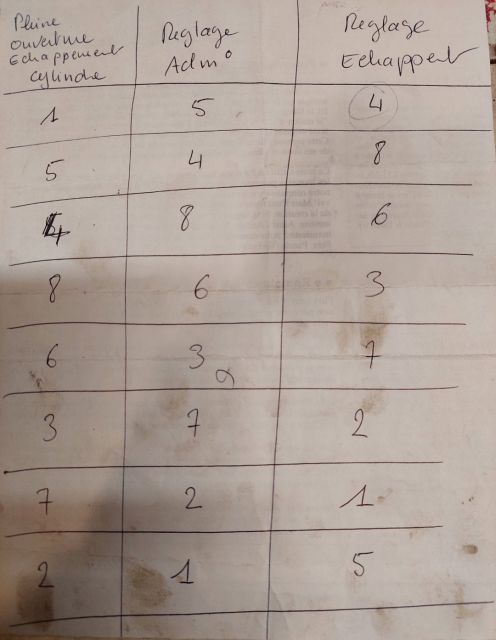 Pleine
ouverture
Echappement
cylindre
Reglage
Adm°
Reglage
Echappent
1 5 4
5 4 8
4 8 6
8 6 3
6 3 7
3 7 2
7 2 1
2 1 5